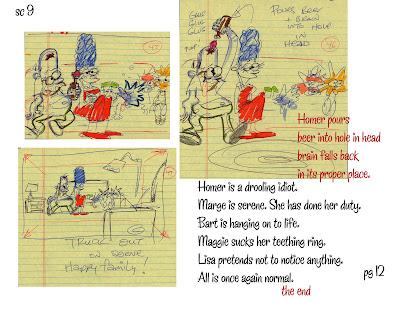 sc 9
GLUG
GLUG
GLUG
POURS BEER
+ BRAIN
INTO HOLE
IN
HEAD
Homer pours
beer into hole in head
brain falls back
in its proper place.
TRUCK OUT
ON SERENE
HAPPY FAMILY!
Homer is a drooling idiot.
Marge is serene. She has done her duty.
Bart is hanging on to life.
Maggie sucks her teething ring.
Lisa pretends not to notice anything.
All is once again normal.
the end
pg 12